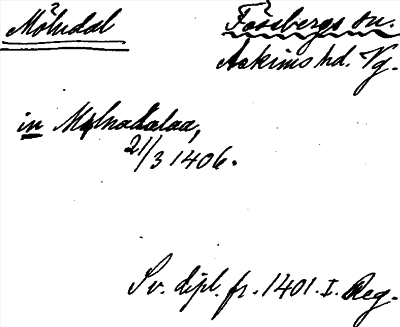 Mölndal
Fässbergs sn.
Askims hd. Vg.
in Mølnadalaa,
21/3 1406.
Sv. dipl. fr. 1401. I. Reg.